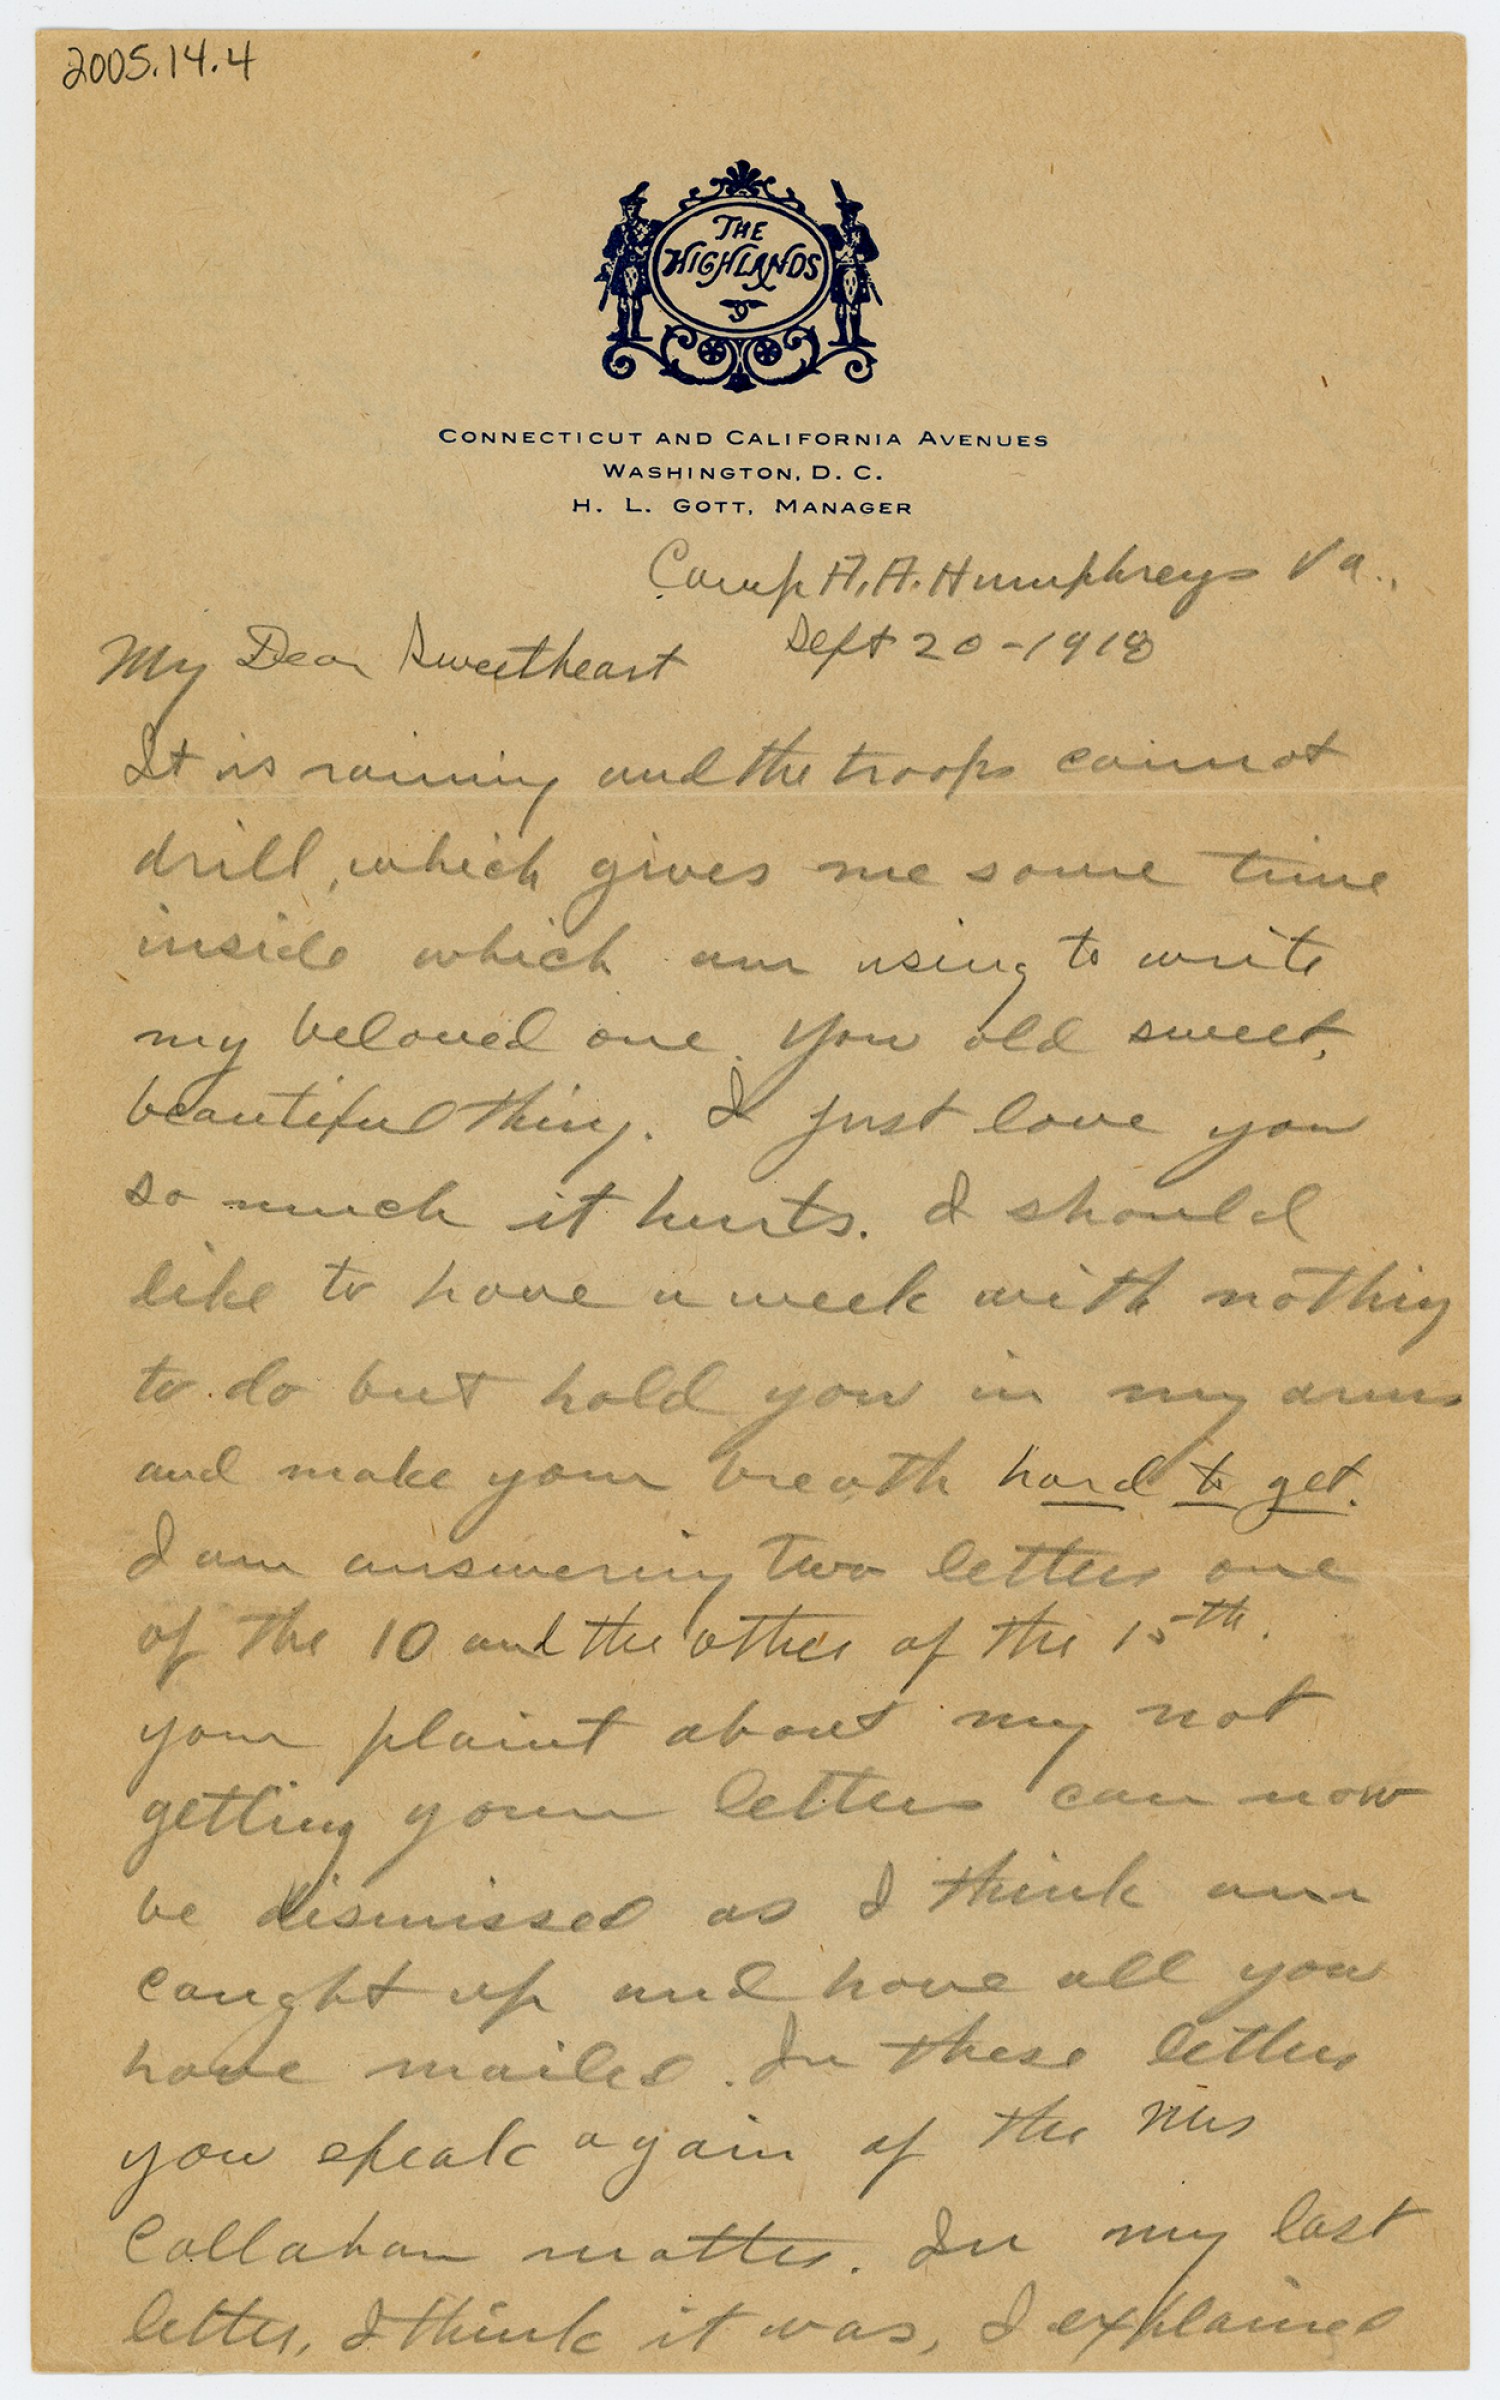 2005.14.4
THE
HIGHLANDS
CONNECTICUT AND CALIFORNIA AVENUES
WASHINGTON, D. C.
H. L. GOTT, MANAGER
Camp A. A. Humphreys Va.,
Sept 20-1918
My Dear Sweetheart
It is raining and the troops cannot
drill, which gives me some time
inside which am using to write
my beloved one. You old sweet,
beautiful thing. I just love you
so much it hurts. I should
like to have a week with nothing
to do but hold you in my arms
and make your breath hard to get.
I am answering two letters one
of the 10 and the other of the 15th.
your plaint about my not
getting your letters can now
be dismissed as I think am
caught up and have all you
have mailed. In these letters
you speak again of the Mrs
Callahan matter. In my last
letter, I think it was, I explained